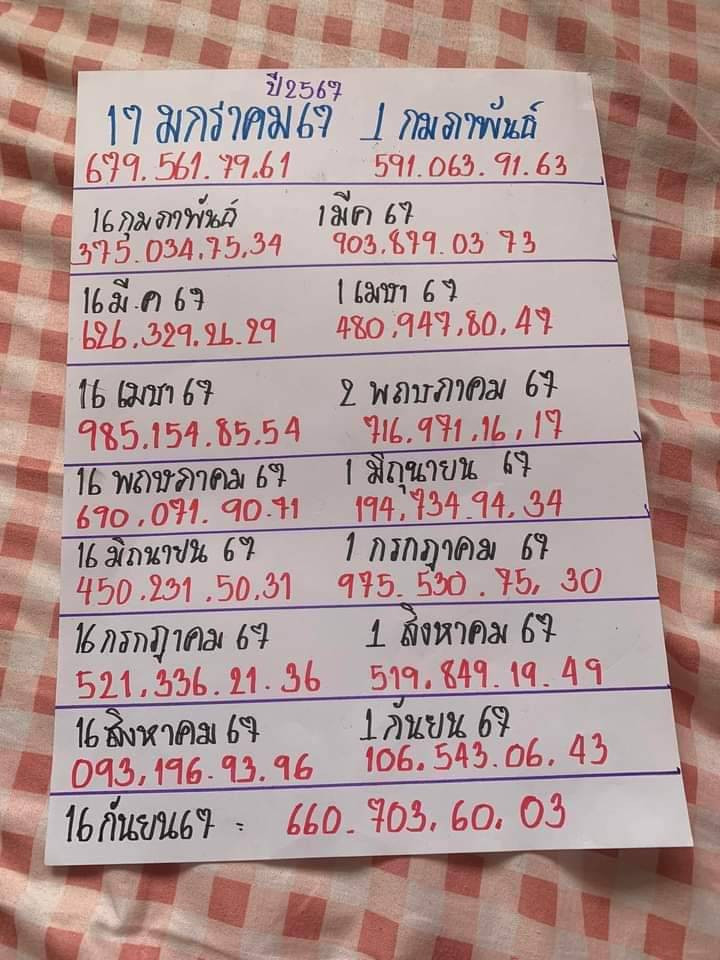 ปี2567
17 มกราคม67 1 กมภาพันธ์
679.561.79.61 591.063.91.63
16กุมภาพันธ์ 1มีค 67
375.034.75.34 903.879.03 73
16 มี.ค 67 1 เมษา 67
626.329.26.29 480.947.80.47
16 เมษา 67 2 พฤษภาคม 67
985.154.85.54 716.971.16.17
16 พฤษภาคม 67 1 มิถุนายน 67
690.071.90.71 194.734.94.34
16 มิถนายน 67 1 กรกฎาคม 67
450.231.50.31 975.530.75. 30
16 กรกฎาคม 67 1 สิงหาคม 67
521.336.21.36 519.849.19.49
16 สิงหาคม 67 1 กันยน 67
093.196.93.96 106.543.06.43
16 กันยน67 - 660-703.60.03